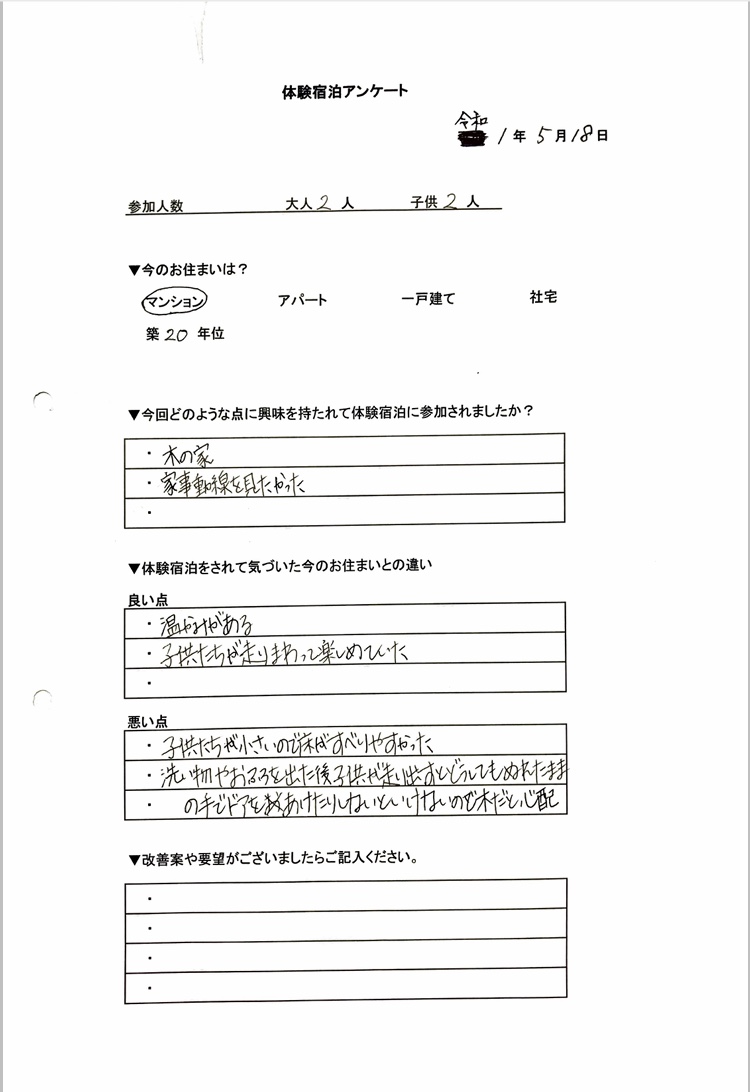 体験宿泊アンケート
令和 1 年 5 月 18 日
参加人数 大人 2 人 子供 2 人
▼今のお住まいは？
マンション アパート 一戸建て 社宅
築 20 年位
▼今回どのような点に興味を持たれて体験宿泊に参加されましたか？
・ 木の家
・ 家事動線を見たかった
・
▼体験宿泊をされて気づいた今のお住まいとの違い
良い点
・ 温かみがある
・ 子供たちが走りまわって楽しめていた
・
悪い点
・ 子供たちが小さいので床がすべりやすかった
・ 洗い物やおふろを出た後子供が走り出すとどうしてもぬれたまま
・ の手でドアをあけたりしないといけないので木だと心配
▼改善案や要望がございましたらご記入ください。
・
・
・
・